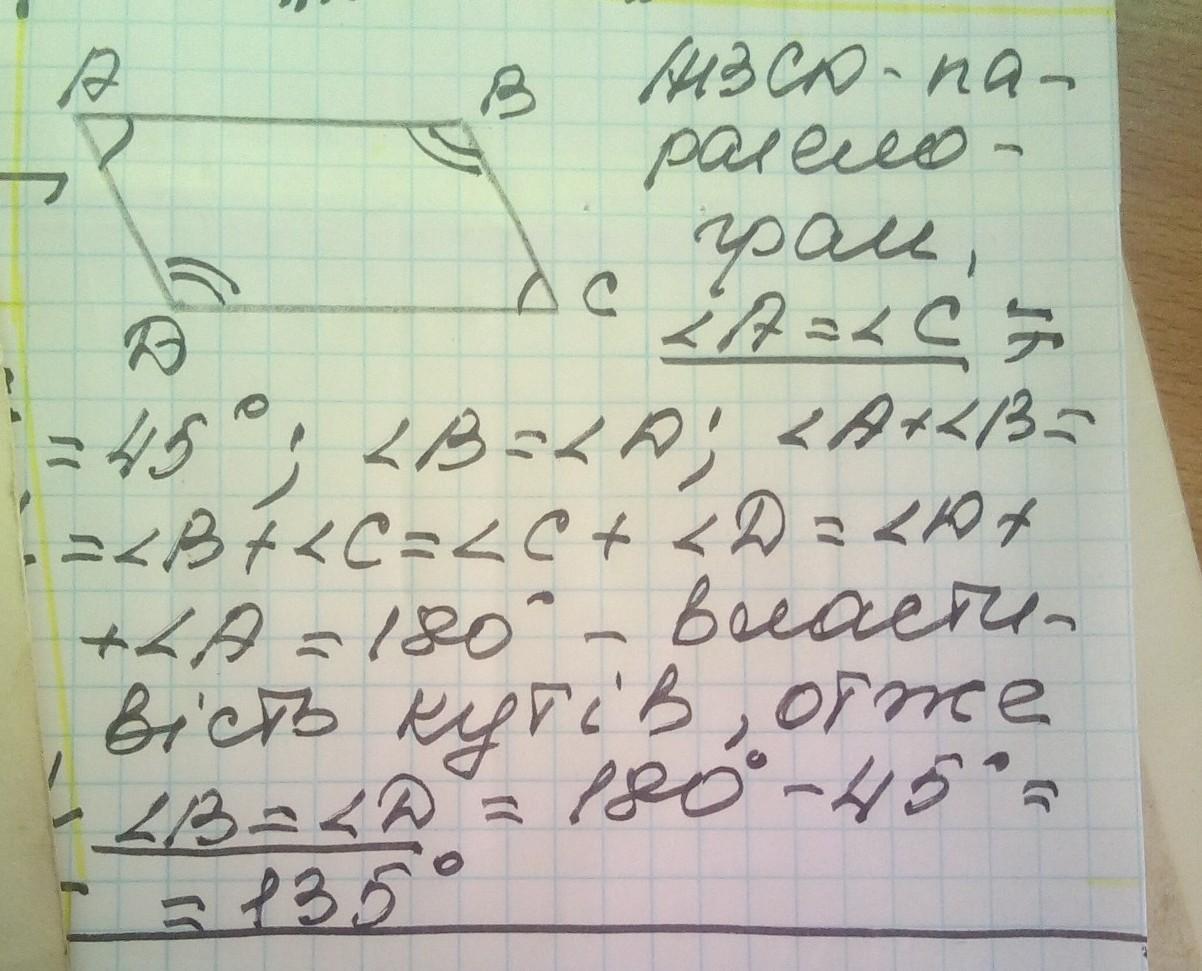 A
B
C
D
ABCD - па-
ралело-
грам,
∠A = ∠C =
= 45°; ∠B = ∠D; ∠A + ∠B =
= ∠B + ∠C = ∠C + ∠D = ∠D +
+ ∠A = 180° - власти-
вість кутів, отже
∠B = ∠D = 180° - 45° =
= 135°